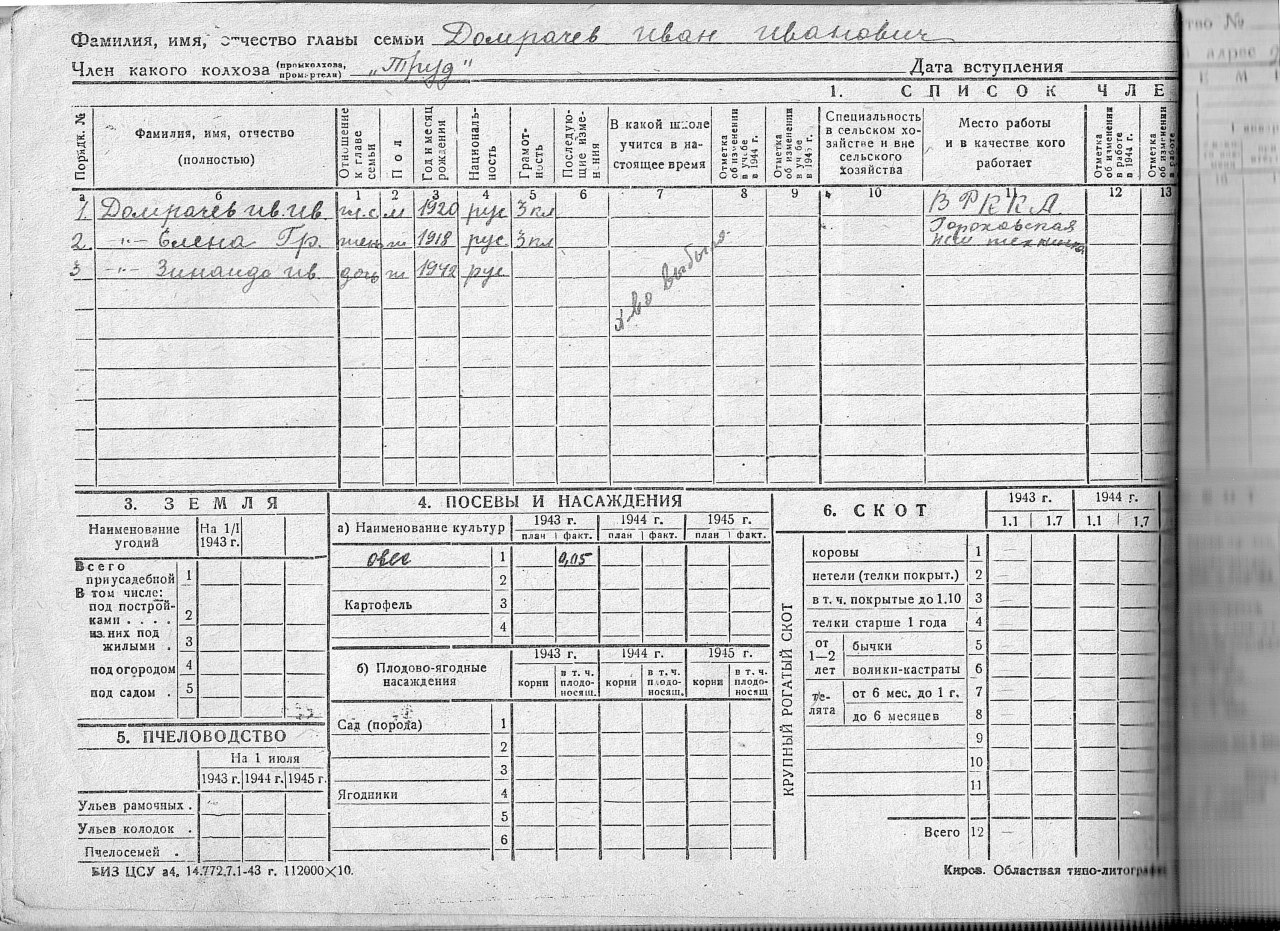 Фамилия, имя, отчество главы семьи Домрачев Иван Иванович
Член какого колхоза (промколхоза, промартели) „Труд" Дата вступления
1. СПИСОК ЧЛЕ
Порядк. № Фамилия, имя, отчество (полностью) Отношение к главе семьи Пол Год и месяц рождения Националь-ность Грамот-ность Последую-щие изме-нения В какой школе учится в на-стоящее время Отметка об изменении в учебе в 1944 г. Отметка об изменении в учебе в 1945 г. Специальность в сельском хо-зяйстве и вне сельского хозяйства Место работы и в качестве кого работает Отметка об изменении в работе в 1944 г. Отметка об изменении в работе
а б 1 2 3 4 5 6 7 8 9 10 11 12 13
1. Домрачев Ив. Ив. гл.с м 1920 рус 3 кл В РККА
2. -"- Елена Гр. жена ж 1918 рус 3 кл Гороховская
3 -"- Зинаида Ив. дочь ж 1942 рус
х-во выбыло
3. ЗЕМЛЯ
Наименование угодий На 1/I 1943 г.
Всего приусадебной 1
В том числе:
под построй-ками . . . . 2
из них под жилыми . 3
под огородом 4
под садом . 5
5. ПЧЕЛОВОДСТВО
На 1 июля
1943 г. 1944 г. 1945 г.
Ульев рамочных .
Ульев колодок .
Пчелосемей .
4. ПОСЕВЫ И НАСАЖДЕНИЯ
а) Наименование культур 1943 г. 1944 г. 1945 г.
план факт. план факт. план факт.
овес 1 0,05
2
Картофель 3
4
б) Плодово-ягодные насаждения 1943 г. 1944 г. 1945 г.
корни в т. ч. плодо-носящ. корни в т. ч. плодо-носящ. корни в т. ч. плодо-носящ
Сад (порода) 1
2
3
Ягодники 4
5
6
6. СКОТ 1943 г. 1944 г.
1.1 1.7 1.1 1.7
КРУПНЫЙ РОГАТЫЙ СКОТ
коровы 1
нетели (телки покрыт.) 2
в т. ч. покрытые до 1.10 3
телки старше 1 года 4
от 1—2 лет бычки 5
волики-кастраты 6
те-лята от 6 мес. до 1 г. 7
до 6 месяцев 8
9
10
11
Всего 12
БИЗ ЦСУ а4. 14.772.7.1-43 г. 112000×10.
Киров. Областная типо-литограф
тво №
адрес